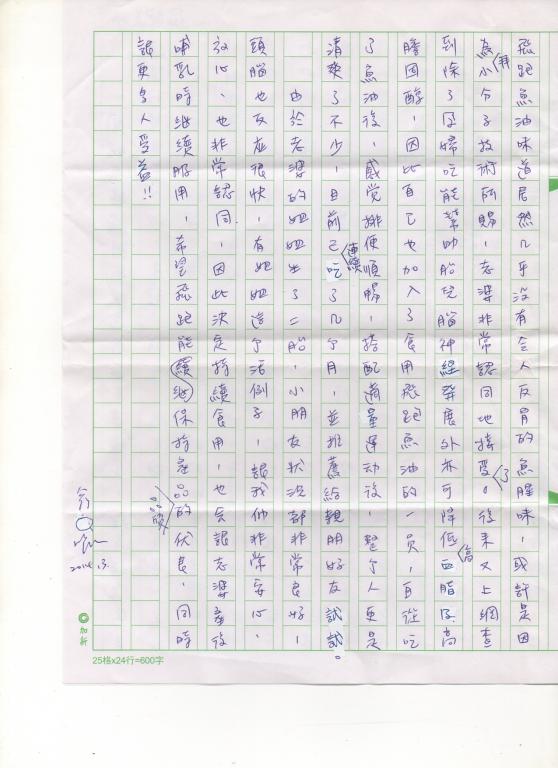 飛跑魚油味道居然几乎沒有令人反胃的魚腥味，或許是因
為小分子技術所賜，老婆非常認同地接受了。後來又上網查
到除了孕婦吃能幫助胎兒腦神經發展外亦可降低血脂及高
膽固醇，因此自己也加入了食用飛跑魚油的一員，自從吃
了魚油後，感覚排便順暢，搭配適量運动後，整个人更是
清爽了不少，目前已連續吃了几个月，並推薦給親朋好友試試。
由於老婆的姐姐生了二胎，小朋友狀況都非常良好，
頭腦也反应很快，有姐姐這个活例子，讓我們非常安心、
放心、也非常認同，因此決定持續食用，也会讓老婆產後
哺乳時继續服用，希望飛跑能继續保持產品的优良，同時
讓更多人受益!!
2014.
加新
25格x24行=600字